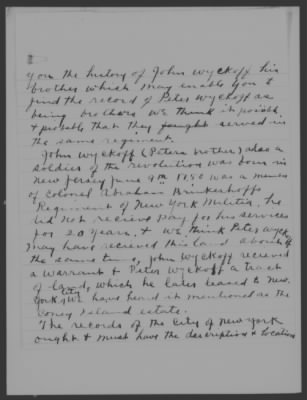 you the history of John Wyckoff his
brother which may enable you to
find the record of Peter Wyckoff as
being brothers we think it possible
& probable that they fought served in
the same regiment.
John Wyckoff (Peters brother) also a
soldier of the revolution was born in
new Jersey June 9th was a member
of Colonel Abraham Brinkerhoffs
Regiment of New York Militia, he
did not recieve pay for his services
for 20 years, & we think Peter Wyckoff
may have recieved this land about
the same time, John Wyckoff recieved
a warrant & Peter Wyckoff a tract
of land, which he later leased to New
York City we have heard it mentioned as the
Coney Island estate.
The records of the City of New York
ought & must have the description & location